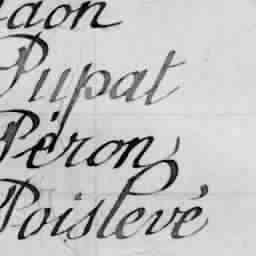 Pupat
Péron
Poislevé